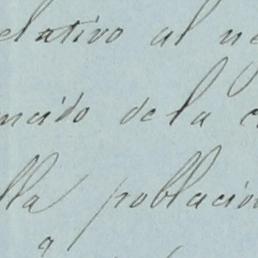 elativo al ne
ncido dela c
lla población